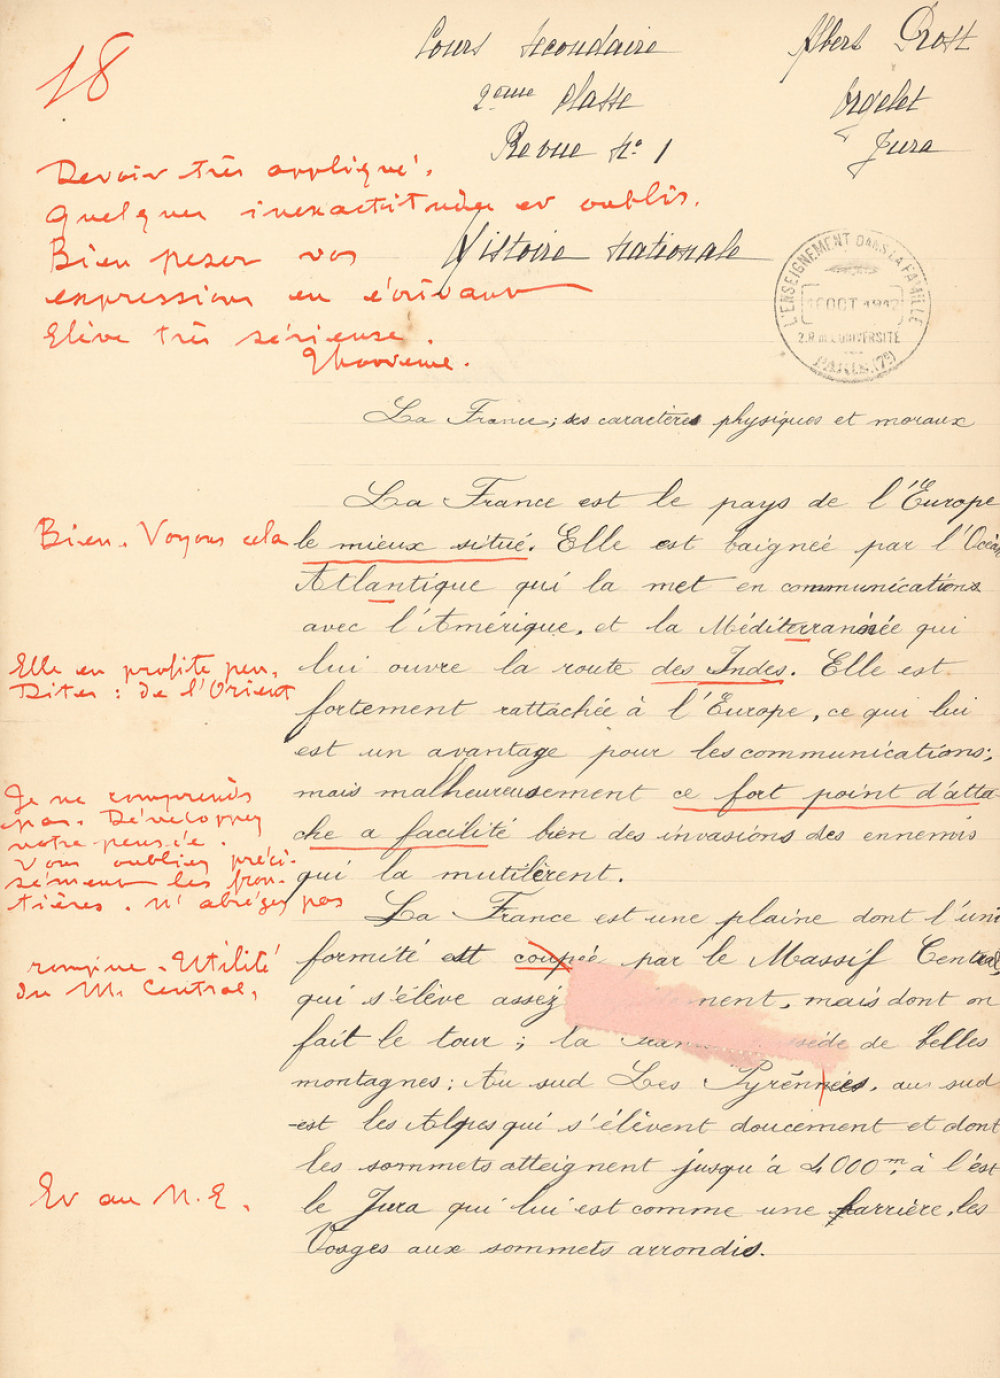 18
Cours secondaire
2ème Classe
Revue No 1
Albert Prost
Orgelet
Jura
Devoir très appliqué.
Quelques inexactitudes et oublis.
Bien peser vos
expressions en écrivant
Elève très sérieuse.
Histoire Nationale
L'ENSEIGNEMENT DANS LA FAMILLE
OCT
2.R de L'UNIVERSITÉ
PARIS (7e)
La France; ses caractères physiques et moraux
La France est le pays de l'Europe
Bien. Voyons cela
le mieux situé. Elle est baignée par l'Océan
Atlantique qui la met en communications
avec l'Amérique, et la Méditerranée qui
Elle en profite peu.
Dites : de l'Orient
lui ouvre la route des Indes. Elle est
fortement rattachée à l'Europe, ce qui lui
est un avantage pour les communications;
Je ne comprends
pas. Développez
votre pensée.
Vous oubliez préci-
sément les fron-
tières. N'abrégez pas
mais malheureusement ce fort point d'atta-
che a facilité bien des invasions des ennemis
qui la mutilèrent.
La France est une plaine dont l'uni
rompue. Utilité
du M. Central.
formité est coupée par le Massif Central
qui s'élève assez nent, mais dont on
fait le tour ; la de belles
montagnes : Au sud Les Pyrénnées, au sud
-est les Alpes qui s'élèvent doucement et dont
les sommets atteignent jusqu'à 4000m, à l'est
Et au N.E.
le Jura qui lui est comme une barrière, les
Vosges aux sommets arrondis.